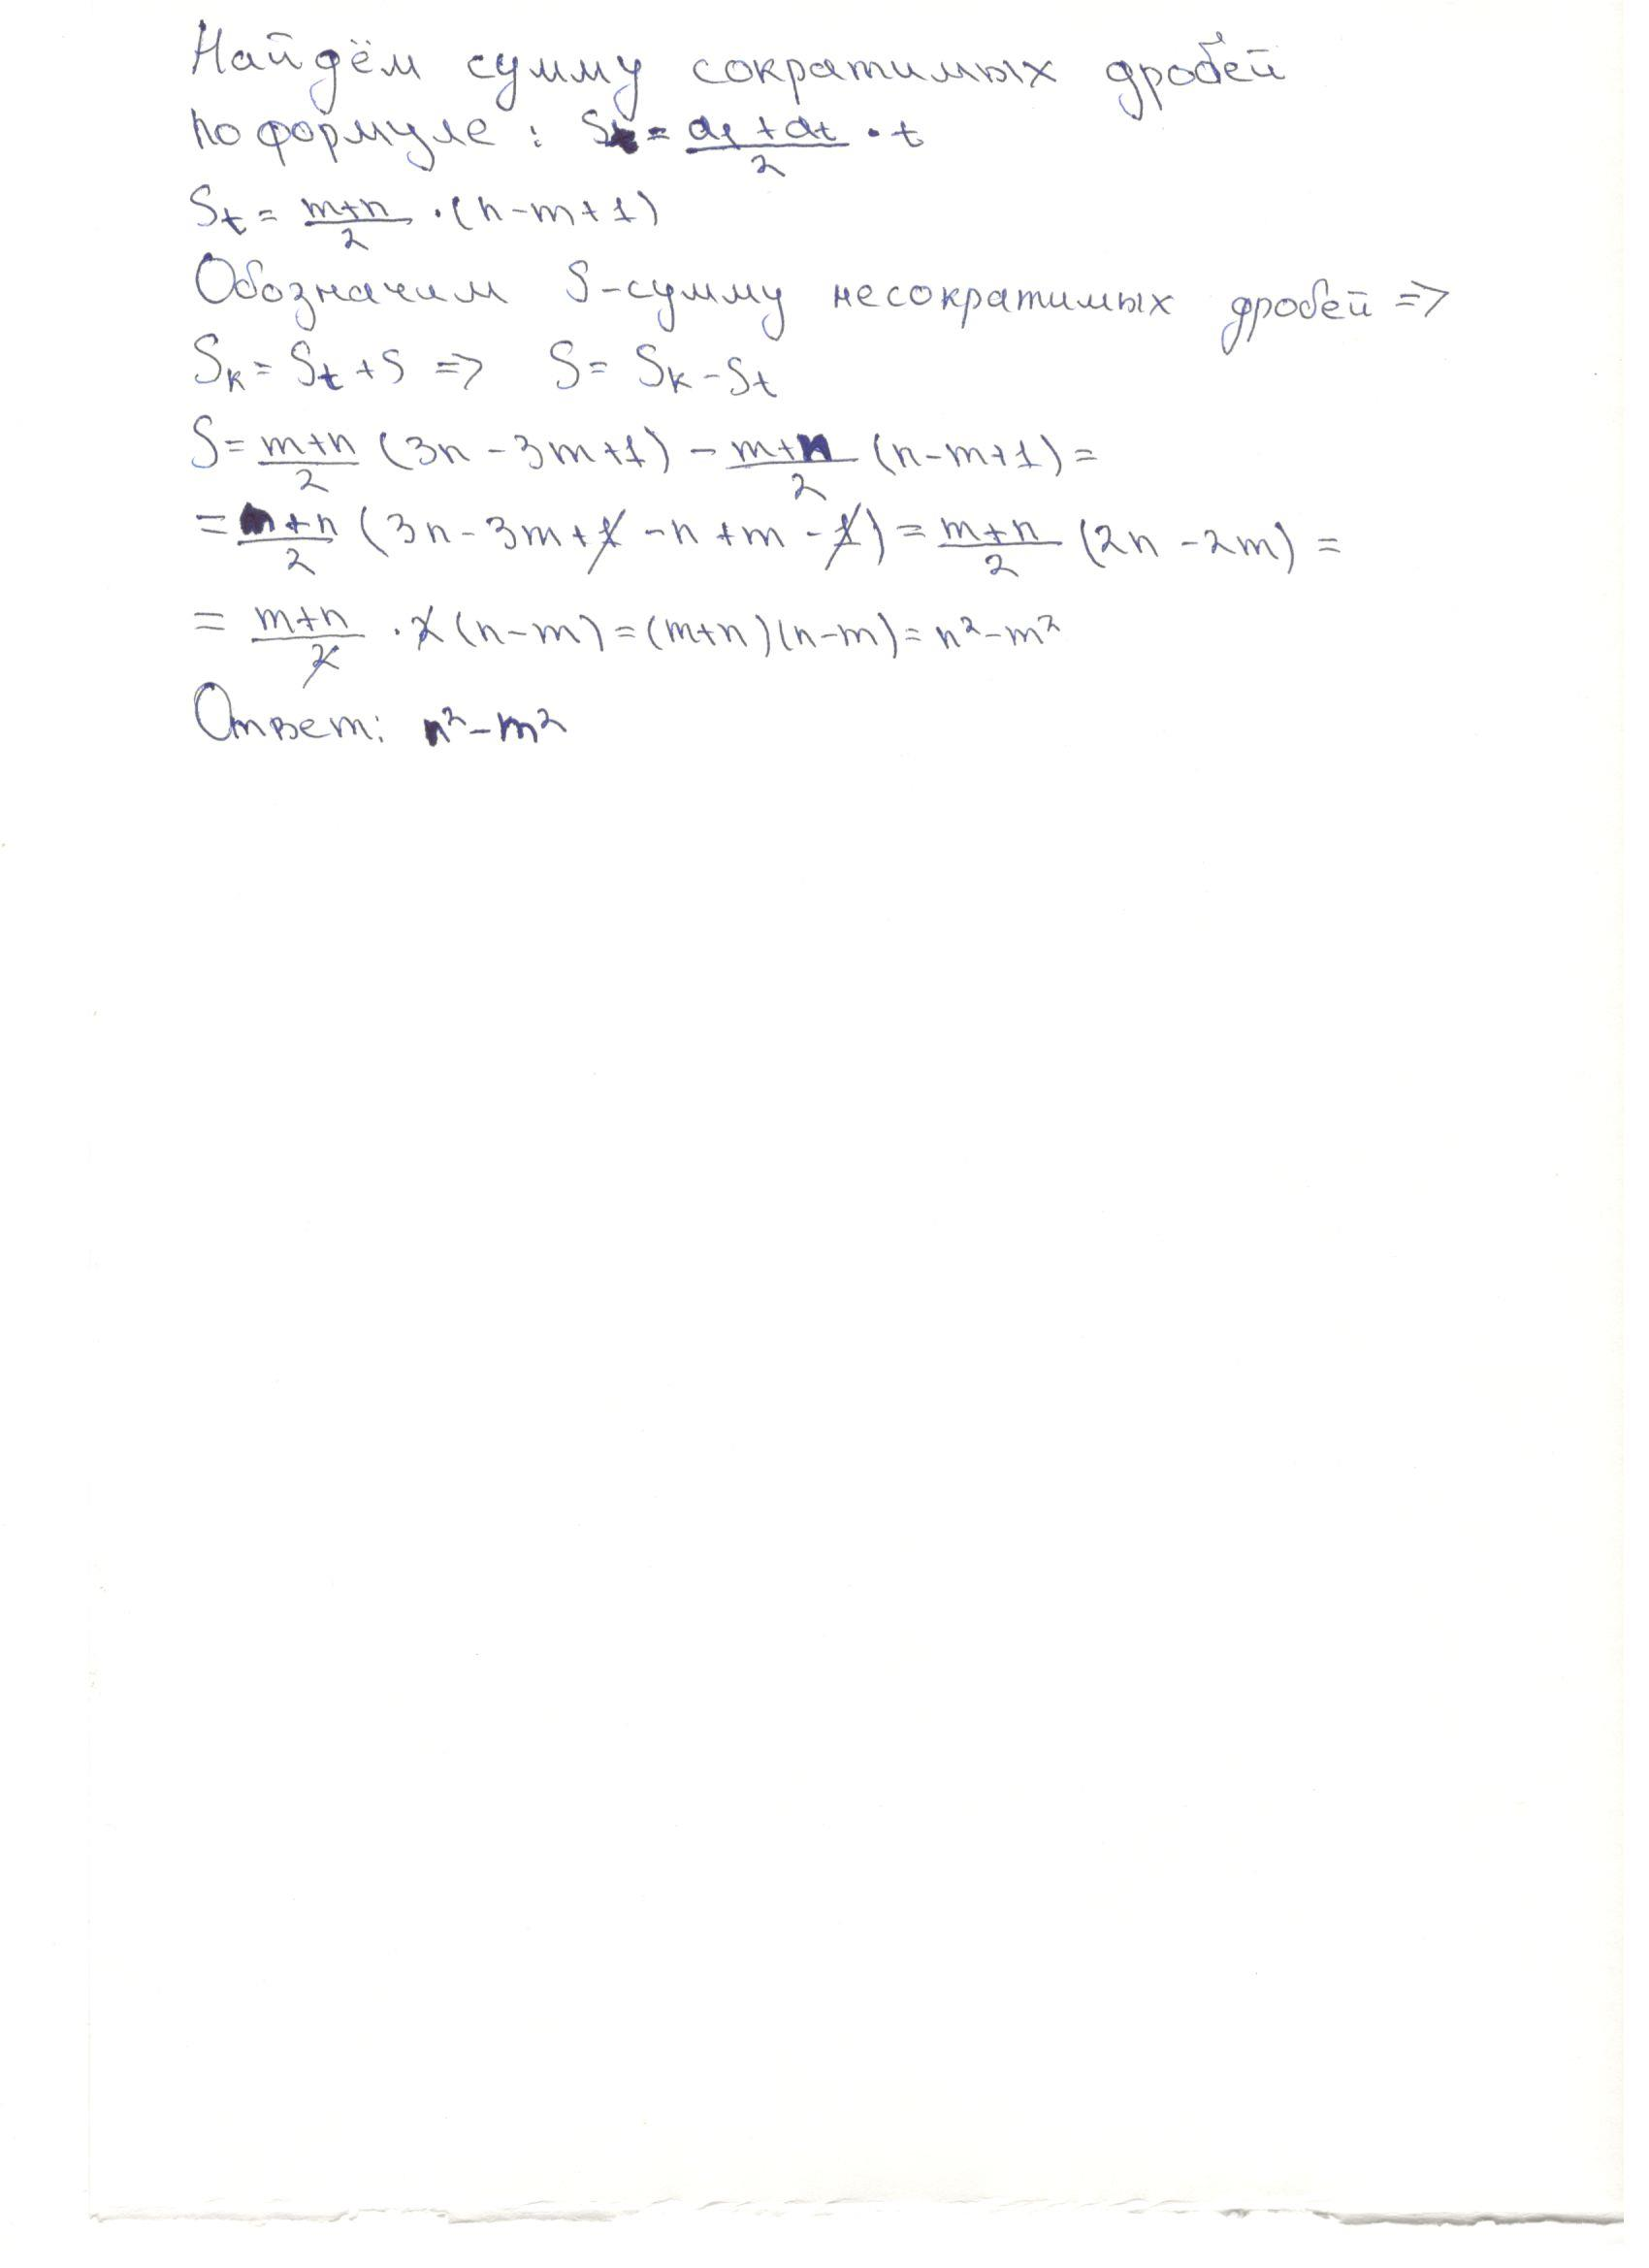 Найдём сумму сократимых дробей
по формуле: S = (a₁ + aₜ)/2 · t
Sₜ = (m+n)/2 · (n-m+1)
Обозначим S-сумму несократимых дробей =>
Sₖ = Sₜ + S => S = Sₖ - Sₜ
S = (m+n)/2 (3n - 3m+1) - (m+n)/2 (n-m+1) =
= (m+n)/2 (3n - 3m + 1 - n + m - 1) = (m+n)/2 (2n - 2m) =
= (m+n)/2 · 2(n-m) = (m+n)(n-m) = n² - m²
Ответ: n² - m²